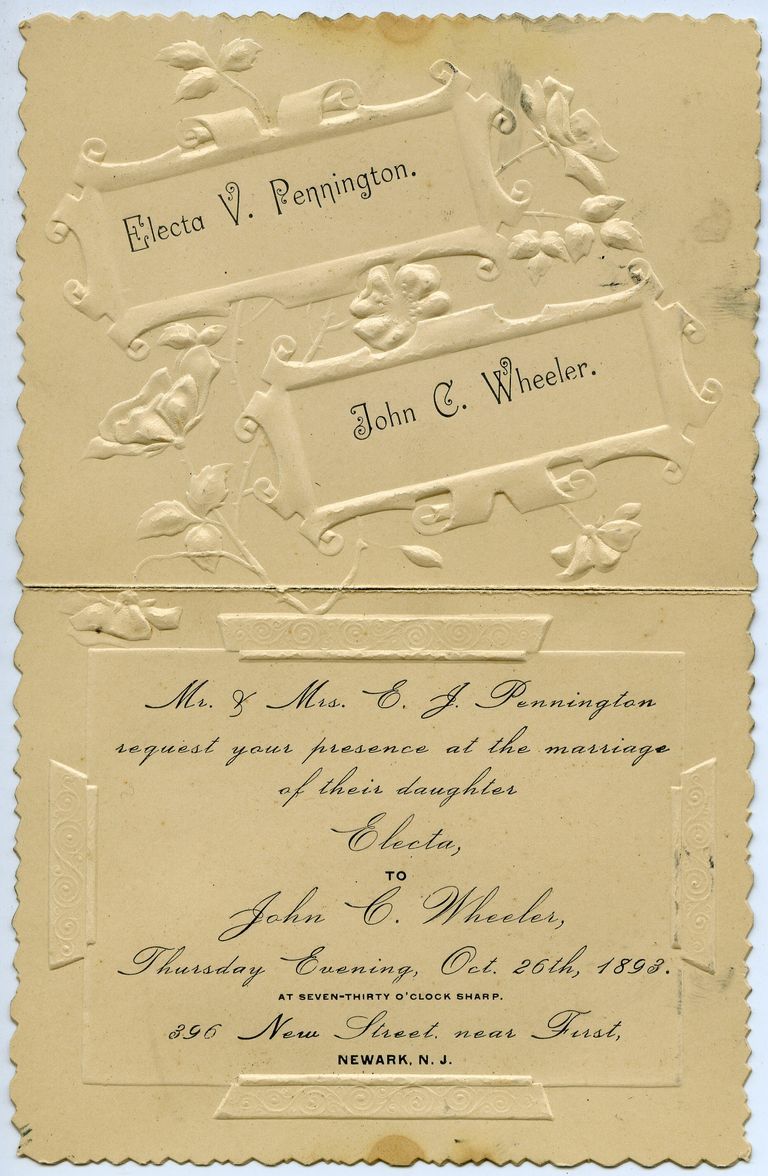 Electa V. Pennington.
John C. Wheeler.
Mr. & Mrs. E. J. Pennington
request your presence at the marriage
of their daughter
Electa,
TO
John C. Wheeler,
Thursday Evening, Oct. 26th, 1893.
AT SEVEN-THIRTY O'CLOCK SHARP.
396 New Street. near First,
NEWARK, N. J.